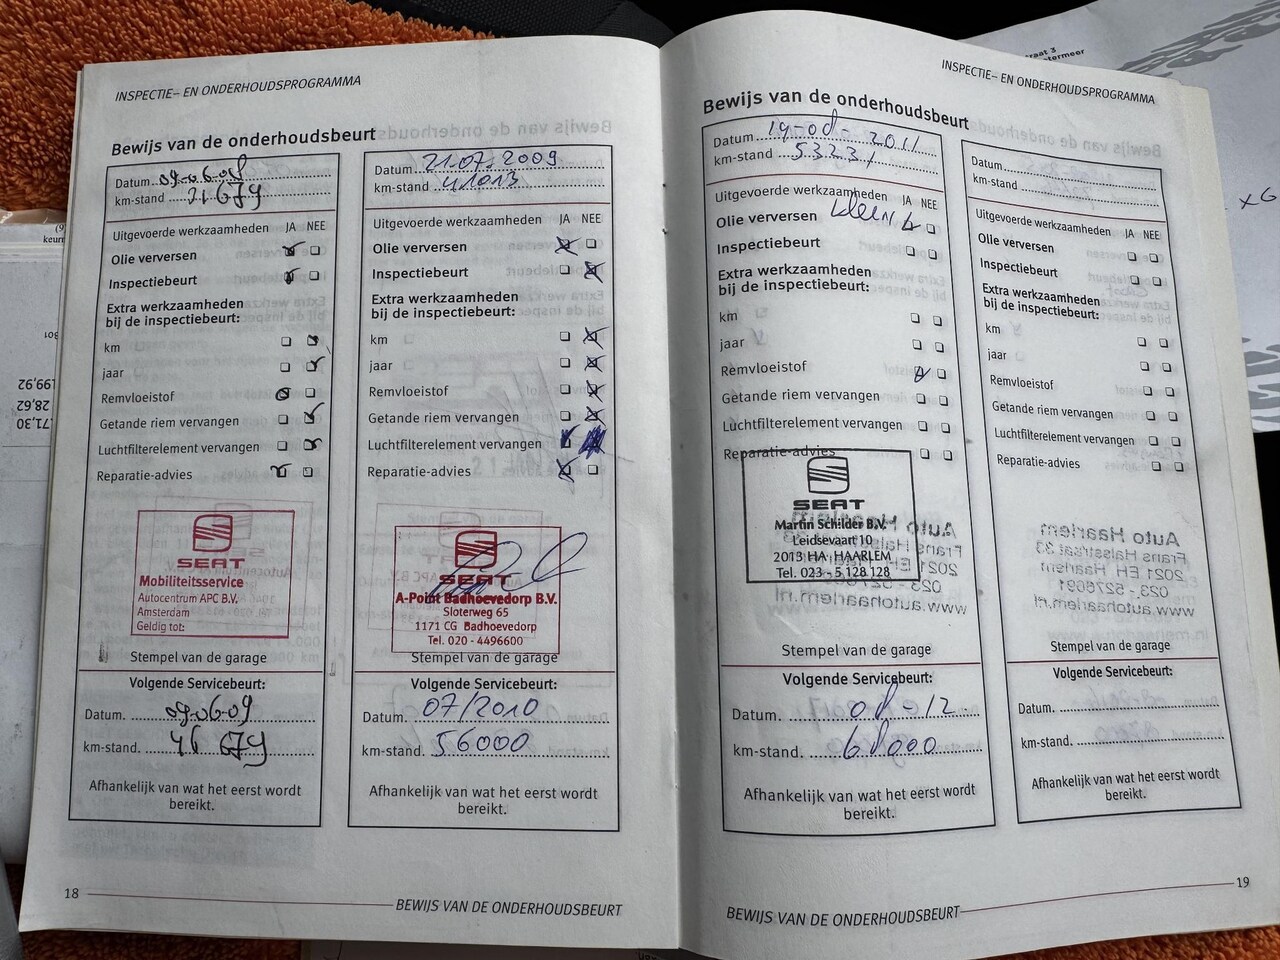 INSPECTIE– EN ONDERHOUDSPROGRAMMA
Bewijs van de onderhoudsbeurt
Datum 09-06-08
km-stand 31679
Uitgevoerde werkzaamheden JA NEE
Olie verversen
Inspectiebeurt
Extra werkzaamheden
bij de inspectiebeurt:
km
jaar
Remvloeistof
Getande riem vervangen
Luchtfilterelement vervangen
Reparatie-advies
SEAT
Mobiliteitsservice
Autocentrum APC B.V.
Amsterdam
Geldig tot:
Stempel van de garage
Volgende Servicebeurt:
Datum. 09-06-09
km-stand. 46679
Afhankelijk van wat het eerst wordt
bereikt.
Datum 21.07.2009
km-stand 41013
Uitgevoerde werkzaamheden JA NEE
Olie verversen
Inspectiebeurt
Extra werkzaamheden
bij de inspectiebeurt:
km
jaar
Remvloeistof
Getande riem vervangen
Luchtfilterelement vervangen
Reparatie-advies
SEAT
A-Point Badhoevedorp B.V.
Sloterweg 65
1171 CG Badhoevedorp
Tel. 020 - 4496600
Stempel van de garage
Volgende Servicebeurt:
Datum. 07/2010
km-stand. 56000
Afhankelijk van wat het eerst wordt
bereikt.
18
BEWIJS VAN DE ONDERHOUDSBEURT
INSPECTIE– EN ONDERHOUDSPROGRAMMA
Bewijs van de onderhoudsbeurt
Datum 19-08-2011
km-stand 53231
Uitgevoerde werkzaamheden JA NEE
Olie verversen klein
Inspectiebeurt
Extra werkzaamheden
bij de inspectiebeurt:
km
jaar
Remvloeistof
Getande riem vervangen
Luchtfilterelement vervangen
Reparatie-advies
SEAT
Martin Schilder B.V.
Leidsevaart 10
2013 HA HAARLEM
Tel. 023 - 5 128 128
Stempel van de garage
Volgende Servicebeurt:
Datum. 08-12
km-stand. 68000
Afhankelijk van wat het eerst wordt
bereikt.
Datum
km-stand
Uitgevoerde werkzaamheden JA NEE
Olie verversen
Inspectiebeurt
Extra werkzaamheden
bij de inspectiebeurt:
km
jaar
Remvloeistof
Getande riem vervangen
Luchtfilterelement vervangen
Reparatie-advies
Auto Haarlem
Frans Halsstraat 33
2021 EH Haarlem
023 - 5276091
www.autohaarlem.nl
Stempel van de garage
Volgende Servicebeurt:
Datum.
km-stand.
Afhankelijk van wat het eerst wordt
bereikt.
BEWIJS VAN DE ONDERHOUDSBEURT
19
raat 3
termeer
x6
199,92
28,62
171,30